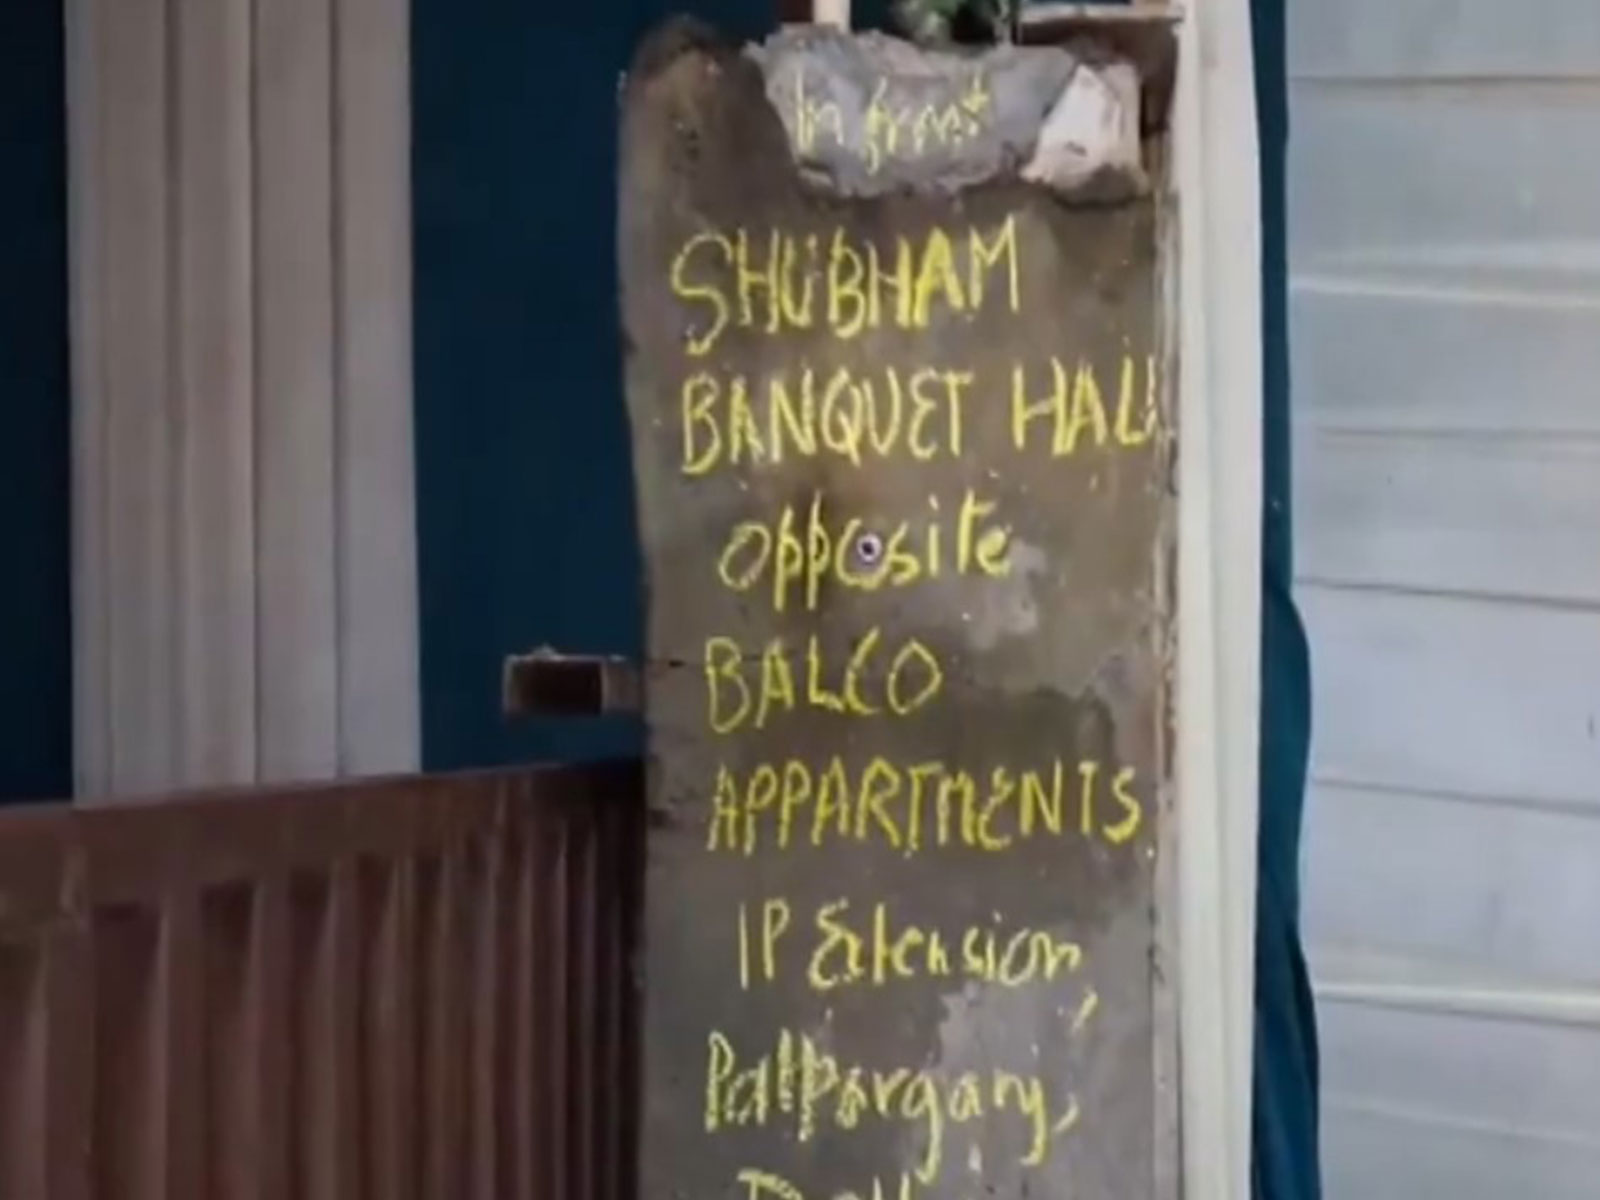 In front
SHUBHAM
BANQUET HALL
opposite
BALCO
APPARTMENTS
IP Extension,
Patparganj,